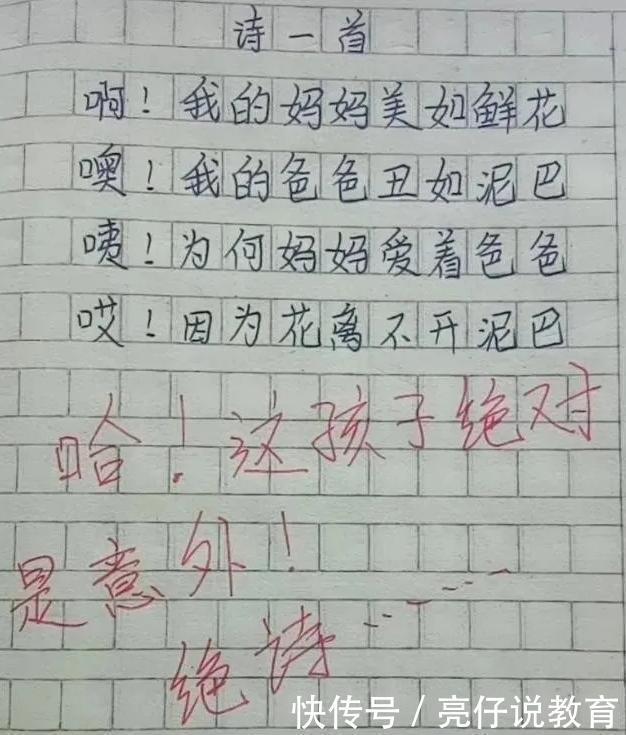 诗一首
啊！我的妈妈美如鲜花
噢！我的爸爸丑如泥巴
咦！为何妈妈爱着爸爸
哎！因为花离不开泥巴
哈！这孩子绝对
是意外！
绝诗……
快传号/亮仔说教育